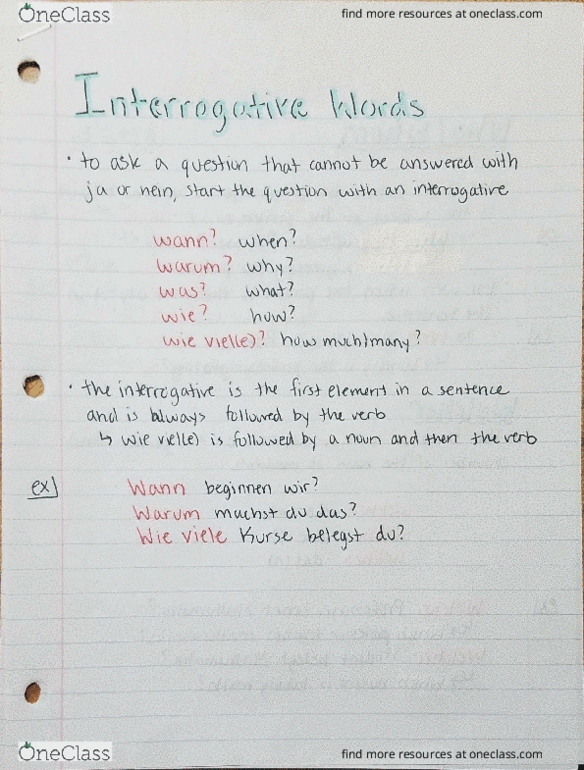 OneClass
find more resources at oneclass.com
Interrogative Words
• to ask a question that cannot be answered with
ja or nein, start the question with an interrogative
wann? when?
warum? why?
was? what?
wie? how?
wie viel(e)? how much/many?
• the interrogative is the first element in a sentence
and is always followed by the verb
↳ wie viel(e) is followed by a noun and then the verb
ex) Wann beginnen wir?
Warum machst du das?
Wie viele Kurse belegst du?
OneClass
find more resources at oneclass.com